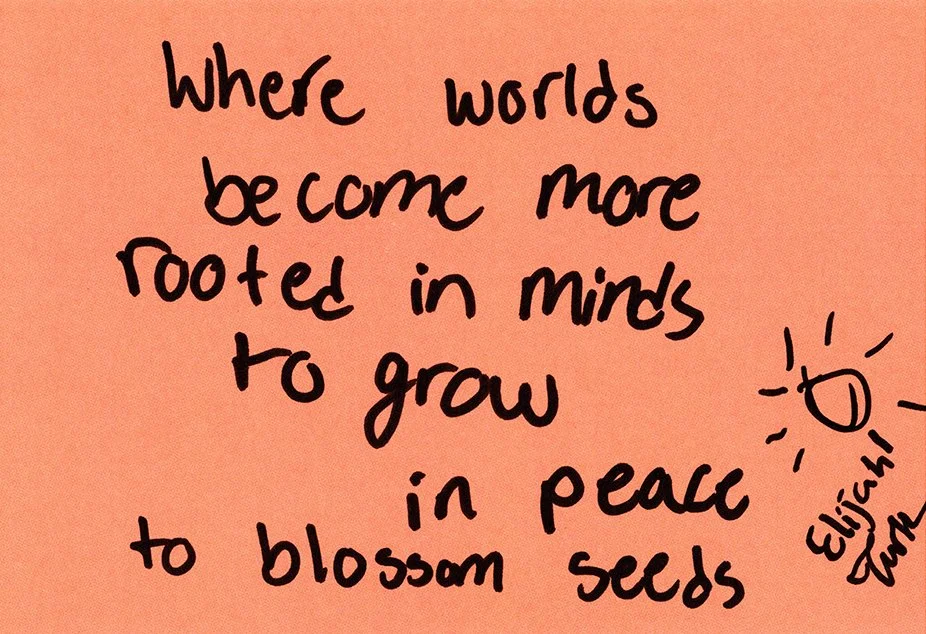 Where worlds
become more
rooted in minds
to grow
in peace
to blossom seeds
Elijah